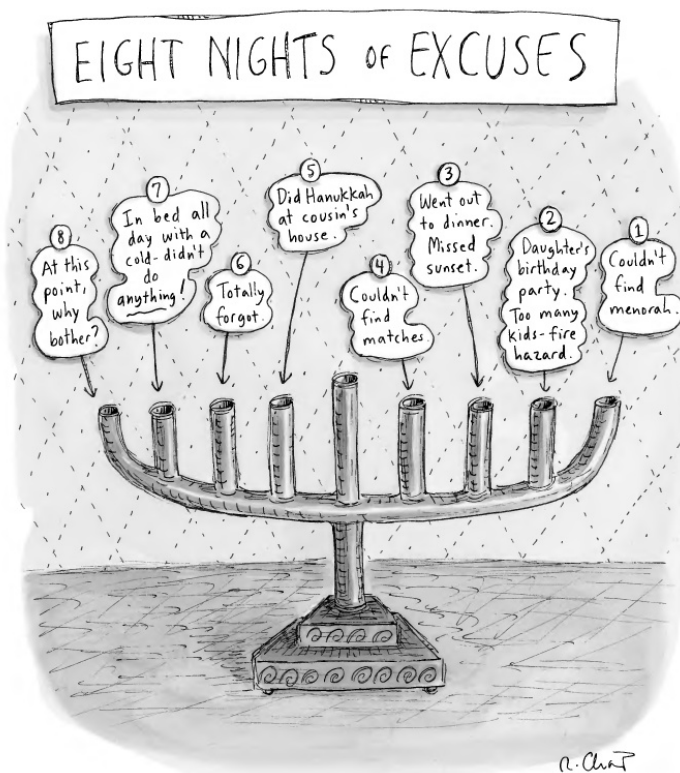 EIGHT NIGHTS OF EXCUSES
8
At this
point,
why
bother?
7
In bed all
day with a
cold-didn't
do
anything!
6
Totally
forgot.
5
Did Hanukkah
at cousin's
house.
4
Couldn't
find
matches.
3
Went out
to dinner.
Missed
sunset.
2
Daughter's
birthday
party.
Too many
kids-fire
hazard.
1
Couldn't
find
menorah.
R. Chast